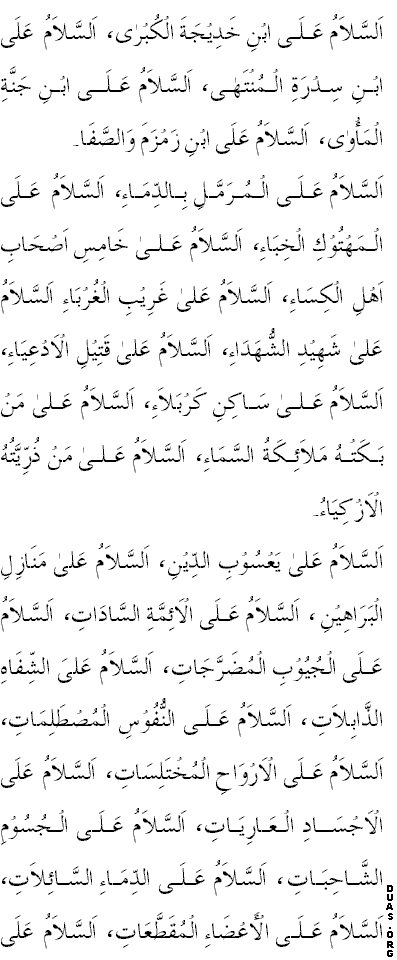 اَلسَّلاَمُ عَلَى ابْنِ خَدِيْجَةَ الْكُبْرٰى، اَلسَّلاَمُ عَلَى
ابْنِ سِدْرَةِ الْمُنْتَهٰى، اَلسَّلاَمُ عَلَى ابْنِ جَنَّةِ
الْمَأْوٰى، اَلسَّلاَمُ عَلَى ابْنِ زَمْزَمَ وَالصَّفَا۔
اَلسَّلاَمُ عَلَى الْمُرَمَّلِ بِالدِّمَاءِ، اَلسَّلاَمُ عَلَى
الْمَهْتُوْكِ الْخِبَاءِ، اَلسَّلاَمُ عَلىٰ خَامِسِ اَصْحَابِ
اَهْلِ الْكِسَاءِ، اَلسَّلاَمُ عَلىٰ غَرِيْبِ الْغُرْبَاءِ اَلسَّلاَمُ
عَلىٰ شَهِيْدِ الشُّهَدَاءِ، اَلسَّلاَمُ عَلىٰ قَتِيْلِ الْاَدْعِيَاءِ،
اَلسَّلاَمُ عَلىٰ سَاكِنِ كَرْبَلاَءِ، اَلسَّلاَمُ عَلىٰ مَنْ
بَكَتْهُ مَلاَئِكَةُ السَّمَاءِ، اَلسَّلاَمُ عَلىٰ مَنْ ذُرِّيَّتُهُ
الْاَزْكِيَاءُ۔
اَلسَّلاَمُ عَلىٰ يَعْسُوْبِ الدِّيْنِ، اَلسَّلاَمُ عَلىٰ مَنَازِلِ
الْبَرَاهِيْنِ، اَلسَّلاَمُ عَلَى الْاَئِمَّةِ السَّادَاتِ، اَلسَّلاَمُ
عَلَى الْجُيُوْبِ الْمُضَرَّجَاتِ، اَلسَّلاَمُ عَلىَ الشِّفَاهِ
الذَّابِلاَتِ، اَلسَّلاَمُ عَلَى النُّفُوْسِ الْمُصْطَلِمَاتِ،
اَلسَّلاَمُ عَلَى الْاَرْوَاحِ الْمُخْتَلِسَاتِ، اَلسَّلاَمُ عَلَى
الْاَجْسَادِ الْعَارِيَاتِ، اَلسَّلاَمُ عَلَى الْجُسُوْمِ
الشَّاحِبَاتِ، اَلسَّلاَمُ عَلَى الدِّمَاءِ السَّائِلاَتِ،
اَلسَّلاَمُ عَلَى الْأَعْضَاءِ الْمُقَطَّعَاتِ، اَلسَّلاَمُ عَلَى
DUAS.ORG